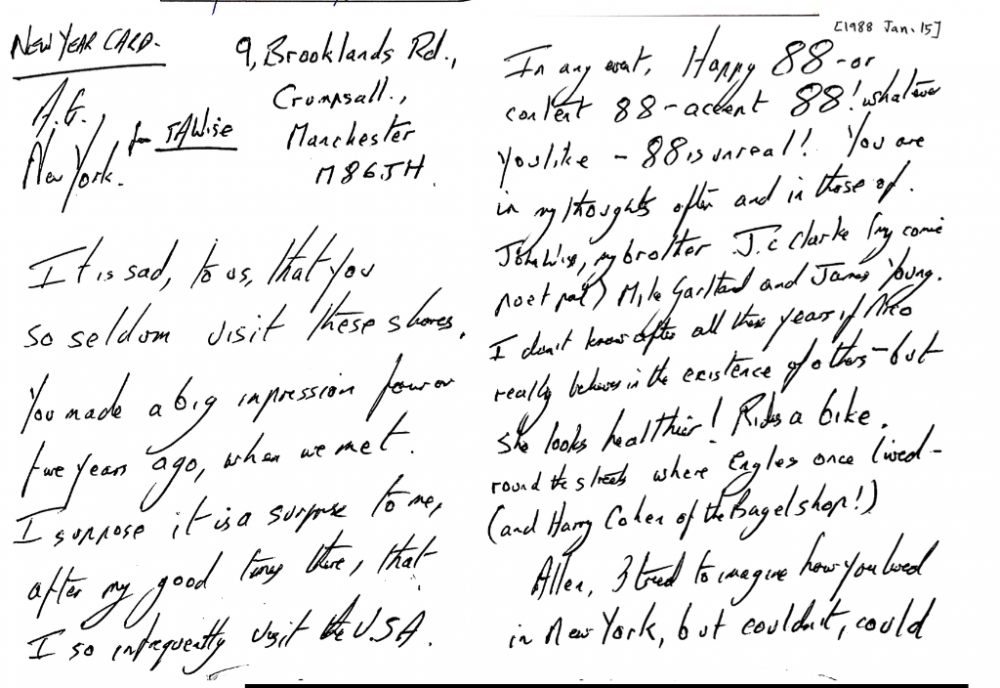 NEW YEAR CARD.
A.G.,
New York.
for TAWise
9, Brooklands Rd.,
Crumpsall.,
Manchester
M86JH.
It is sad, to us, that you
so seldom visit these shores.
You made a big impression four or
five years ago, when we met.
I suppose it is a surprise to me,
after my good times there, that
I so infrequently visit the U.S.A.
[1988 Jan. 15]
In any event, Happy 88 - or
content 88 - accent 88! whatever
you like - 88 is unreal! You are
in my thoughts often and in those of.
John Wise, my brother J.C Clarke (my comic
poet pal) Mike Garland and James Young.
I don't know after all these years if Nico
really believes in the existence of others - but
she looks healthier! Rides a bike.
round the streets where Engles once lived -
(and Harry Cohen of the Bagel shop!)
Allen, I tried to imagine how you lived
in New York, but couldn't, could